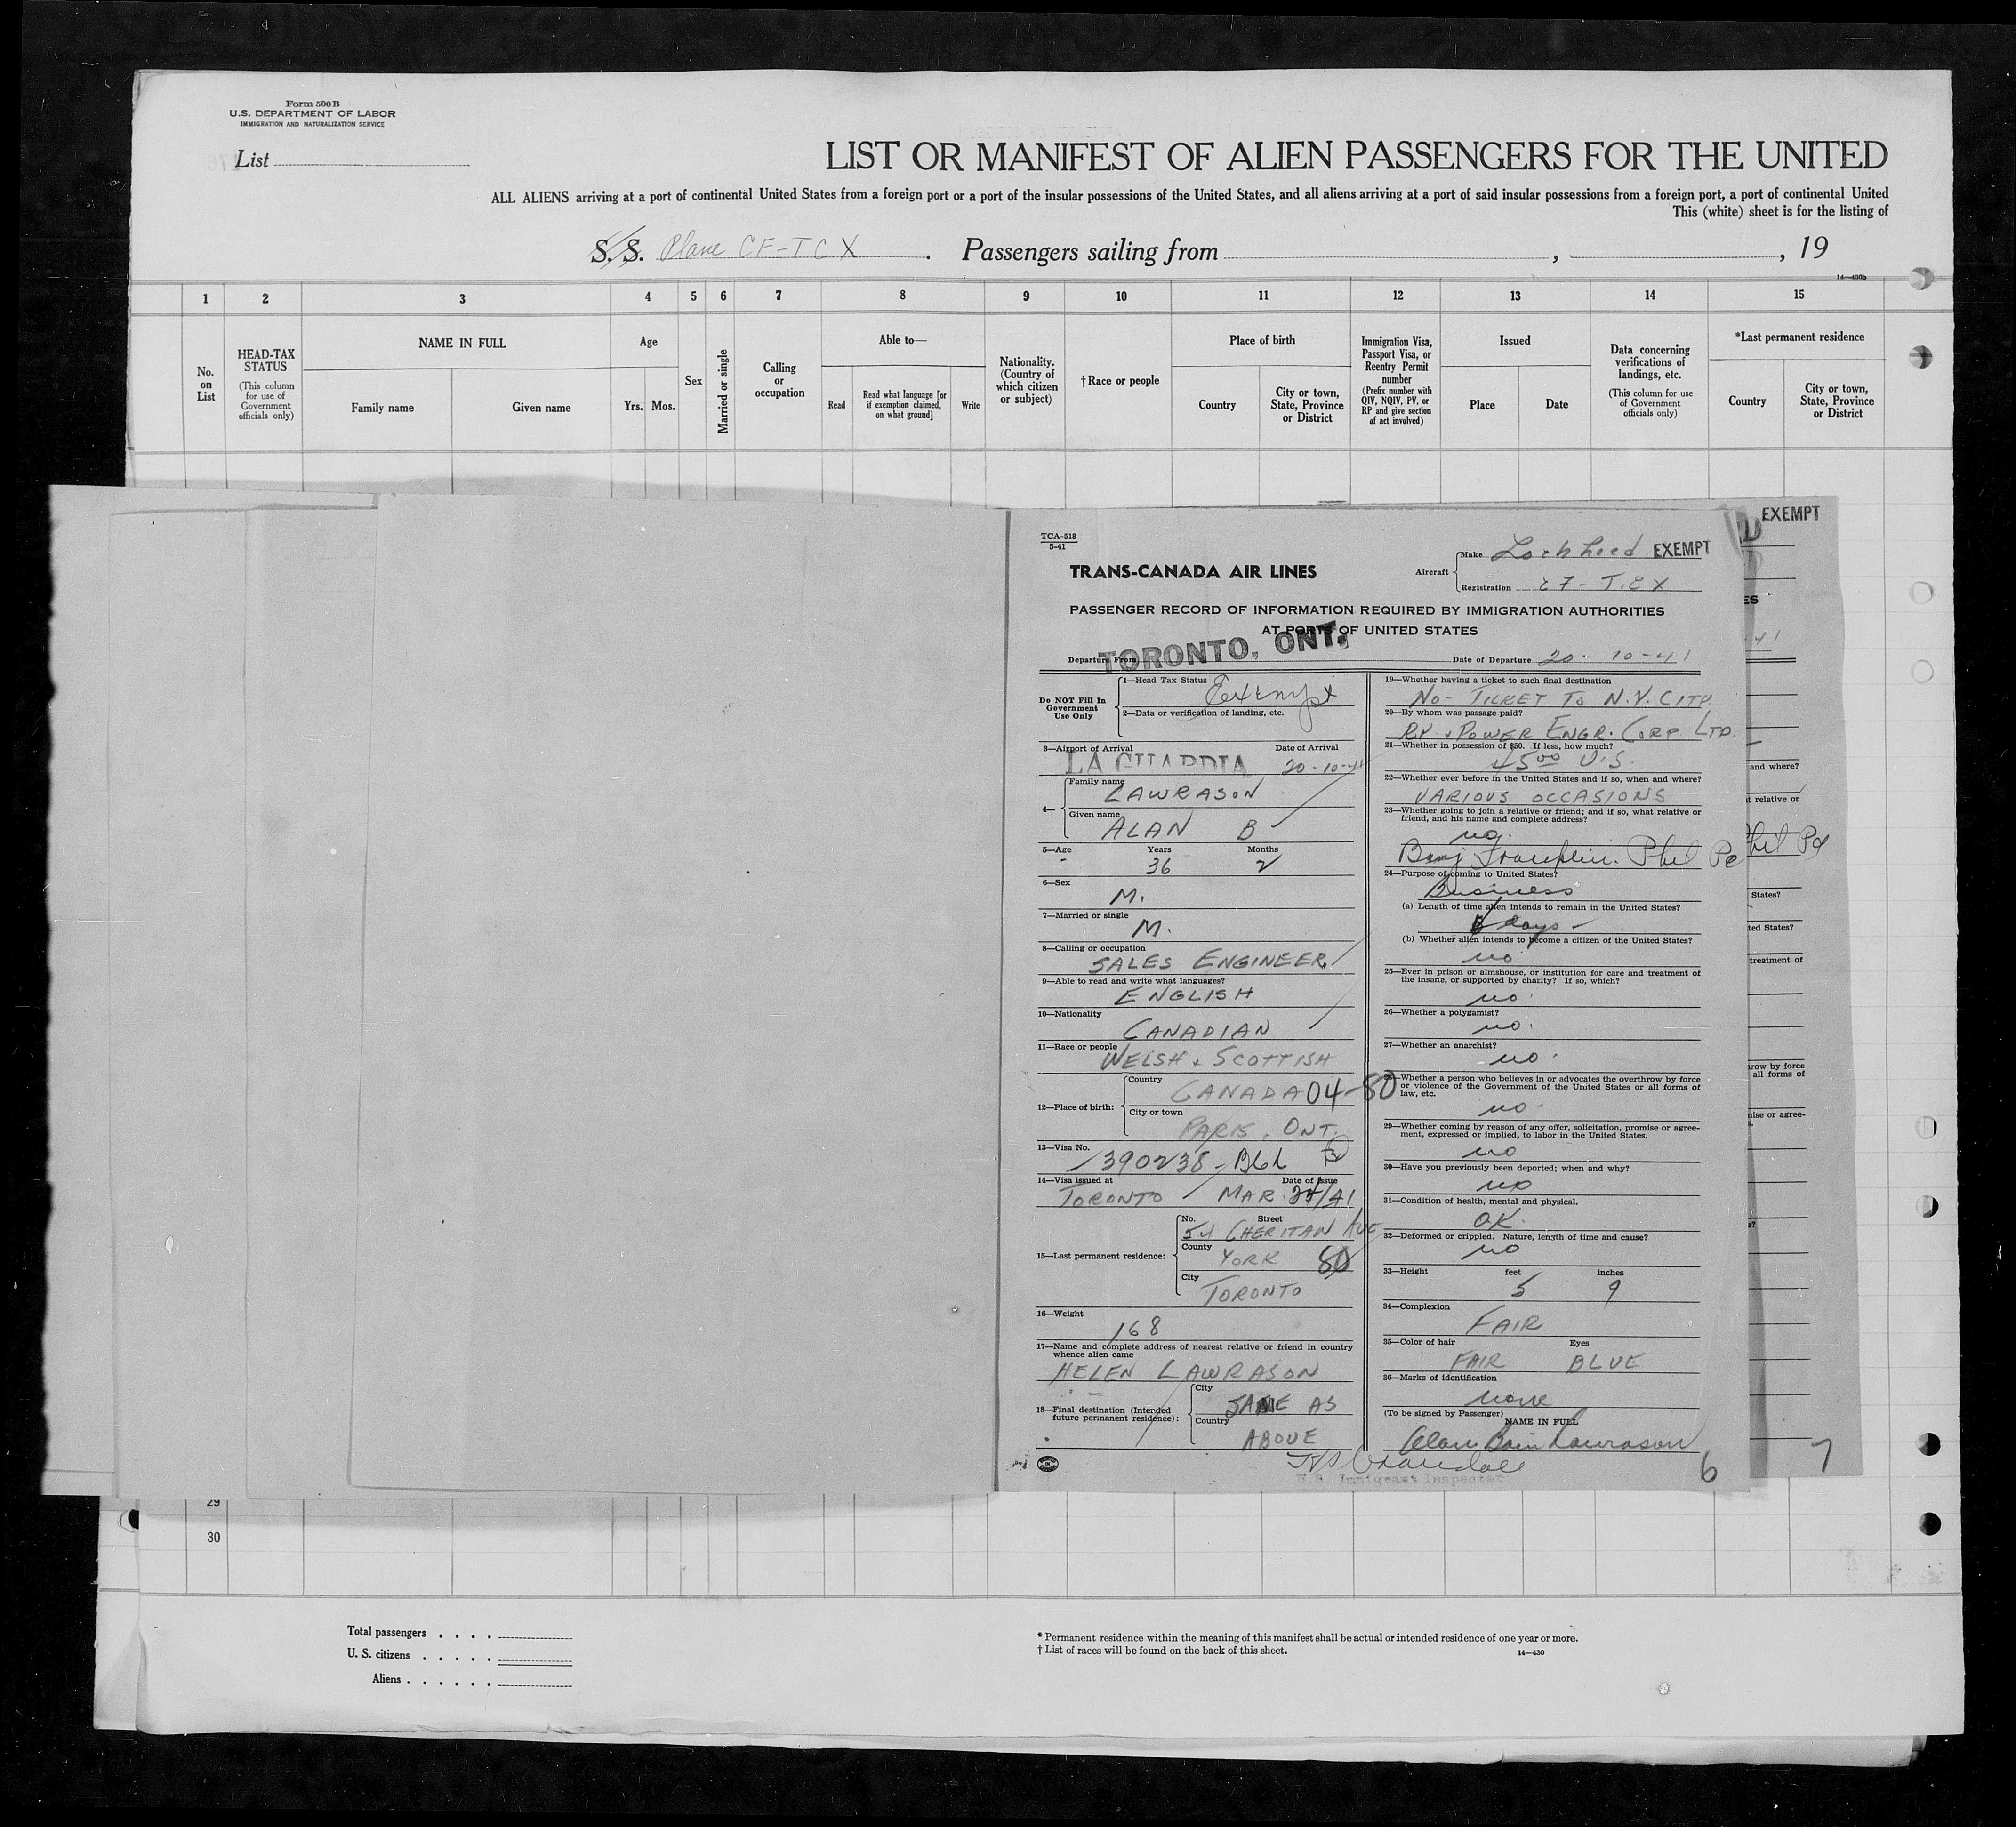 Form 500 B
U.S. DEPARTMENT OF LABOR
IMMIGRATION AND NATURALIZATION SERVICE
List
LIST OR MANIFEST OF ALIEN PASSENGERS FOR THE UNITED
ALL ALIENS arriving at a port of continental United States from a foreign port or a port of the insular possessions of the United States, and all aliens arriving at a port of said insular possessions from a foreign port, a port of continental United
This (white) sheet is for the listing of
S.S. Plane CF-TCX . Passengers sailing from , , 19
14—430b
1 2 3 4 5 6 7 8 9 10 11 12 13 14 15
No. on List
HEAD-TAX STATUS (This column for use of Government officials only)
NAME IN FULL
Family name Given name
Age
Yrs. Mos.
Sex
Married or single
Calling or occupation
Able to—
Read
Read what language [or if exemption claimed, on what ground]
Write
Nationality. (Country of which citizen or subject)
†Race or people
Place of birth
Country
City or town, State, Province or District
Immigration Visa, Passport Visa, or Reentry Permit number (Prefix number with QIV, NQIV, PV, or RP and give section of act involved)
Issued
Place Date
Data concerning verifications of landings, etc. (This column for use of Government officials only)
*Last permanent residence
Country
City or town, State, Province or District
TCA-518
5-41
TRANS-CANADA AIR LINES
Aircraft
Make Lockheed EXEMPT
Registration CF-TCX
PASSENGER RECORD OF INFORMATION REQUIRED BY IMMIGRATION AUTHORITIES
AT PORTS OF UNITED STATES
Departure From TORONTO, ONT.
Date of Departure 20-10-41
Do NOT Fill In Government Use Only
1—Head Tax Status Exempt
2—Data or verification of landing, etc.
3—Airport of Arrival LA GUARDIA Date of Arrival 20-10-41
4— Family name LAWRASON
Given name ALAN B
5—Age Years 36 Months 2
6—Sex M.
7—Married or single M.
8—Calling or occupation SALES ENGINEER
9—Able to read and write what languages? ENGLISH
10—Nationality CANADIAN
11—Race or people WELSH & SCOTTISH
12—Place of birth: Country CANADA 04-80
City or town PARIS, ONT.
13—Visa No. 390238
14—Visa issued at TORONTO Date of Issue MAR. 24/41
15—Last permanent residence: No. Street 54 CHERITAN AVE
County YORK 80
City TORONTO
16—Weight 168
17—Name and complete address of nearest relative or friend in country whence alien came
HELEN LAWRASON
18—Final destination (Intended future permanent residence): City SAME AS
Country ABOVE
19—Whether having a ticket to such final destination
NO - TICKET TO N.Y. CITY.
20—By whom was passage paid?
RY & POWER ENGR. CORP. LTD.
21—Whether in possession of $50. If less, how much?
45.00 U.S.
22—Whether ever before in the United States and if so, when and where?
VARIOUS OCCASIONS
23—Whether going to join a relative or friend; and if so, what relative or friend, and his name and complete address?
no.
Benj Franklin. Phil Pa
24—Purpose of coming to United States?
Business
(a) Length of time alien intends to remain in the United States?
days
(b) Whether alien intends to become a citizen of the United States?
no
25—Ever in prison or almshouse, or institution for care and treatment of the insane, or supported by charity? If so, which?
no.
26—Whether a polygamist?
no.
27—Whether an anarchist?
no.
Whether a person who believes in or advocates the overthrow by force or violence of the Government of the United States or all forms of law, etc.
no.
29—Whether coming by reason of any offer, solicitation, promise or agreement, expressed or implied, to labor in the United States.
no
30—Have you previously been deported; when and why?
no
31—Condition of health, mental and physical.
OK.
32—Deformed or crippled. Nature, length of time and cause?
no
33—Height feet 5 inches 9
34—Complexion FAIR
35—Color of hair FAIR Eyes BLUE
36—Marks of identification
none
(To be signed by Passenger) NAME IN FULL
Alan Bain Lawrason
U.S. Immigrant Inspector
6
EXEMPT
and where?
relative or
Phil Pa
States?
ted States?
treatment of
row by force
all forms of
mise or agree-
7
29
30
Total passengers
U. S. citizens
Aliens
* Permanent residence within the meaning of this manifest shall be actual or intended residence of one year or more.
† List of races will be found on the back of this sheet.
14—430